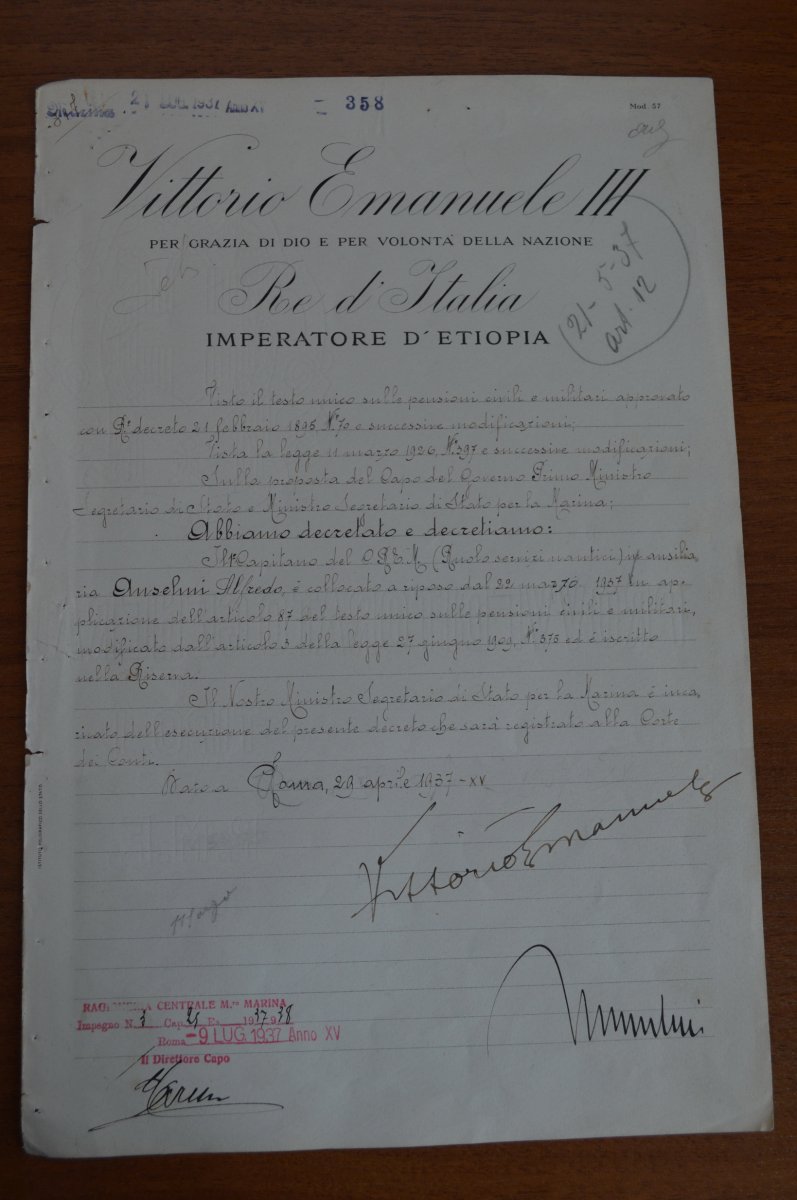 21 LUG. 1937 ANNO XV
358
Mod. 57
Vittorio Emanuele III
PER GRAZIA DI DIO E PER VOLONTA' DELLA NAZIONE
Re d'Italia
IMPERATORE D'ETIOPIA
21-5-37
art. 12
Visto il testo unico sulle pensioni civili e militari approvato
con R° decreto 21 febbraio 1895, N° 70 e successive modificazioni;
Vista la legge 11 marzo 1926, N° 397 e successive modificazioni;
Sulla proposta del Capo del Governo Primo Ministro
Segretario di Stato e Ministro Segretario di Stato per la Marina;
Abbiamo decretato e decretiamo:
Capitano del C.R.E.M. (Ruolo servizi nautici) in ausilia,
ria Anselmi Alfredo, è collocato a riposo dal 22 marzo 1937 in ap,
plicazione dell'articolo 87 del testo unico sulle pensioni civili e militari,
modificato dall'articolo 3 della legge 27 giugno 1909, N° 375 ed è iscritto
nella Riserva.
Il Nostro Ministro Segretario di Stato per la Marina è inca,
ricato dell'esecuzione del presente decreto che sarà registrato alla Corte
dei Conti.
Dato a Roma, 29 aprile 1937-XV
Vittorio Emanuele
Mussolini
ISTITUTO POLIGRAFICO DELLO STATO
CENTRALE M.re MARINA
Impegno N. 3 Cap. 21 Es. 1937 938
Roma -9 LUG. 1937 Anno XV
Il Direttore Capo